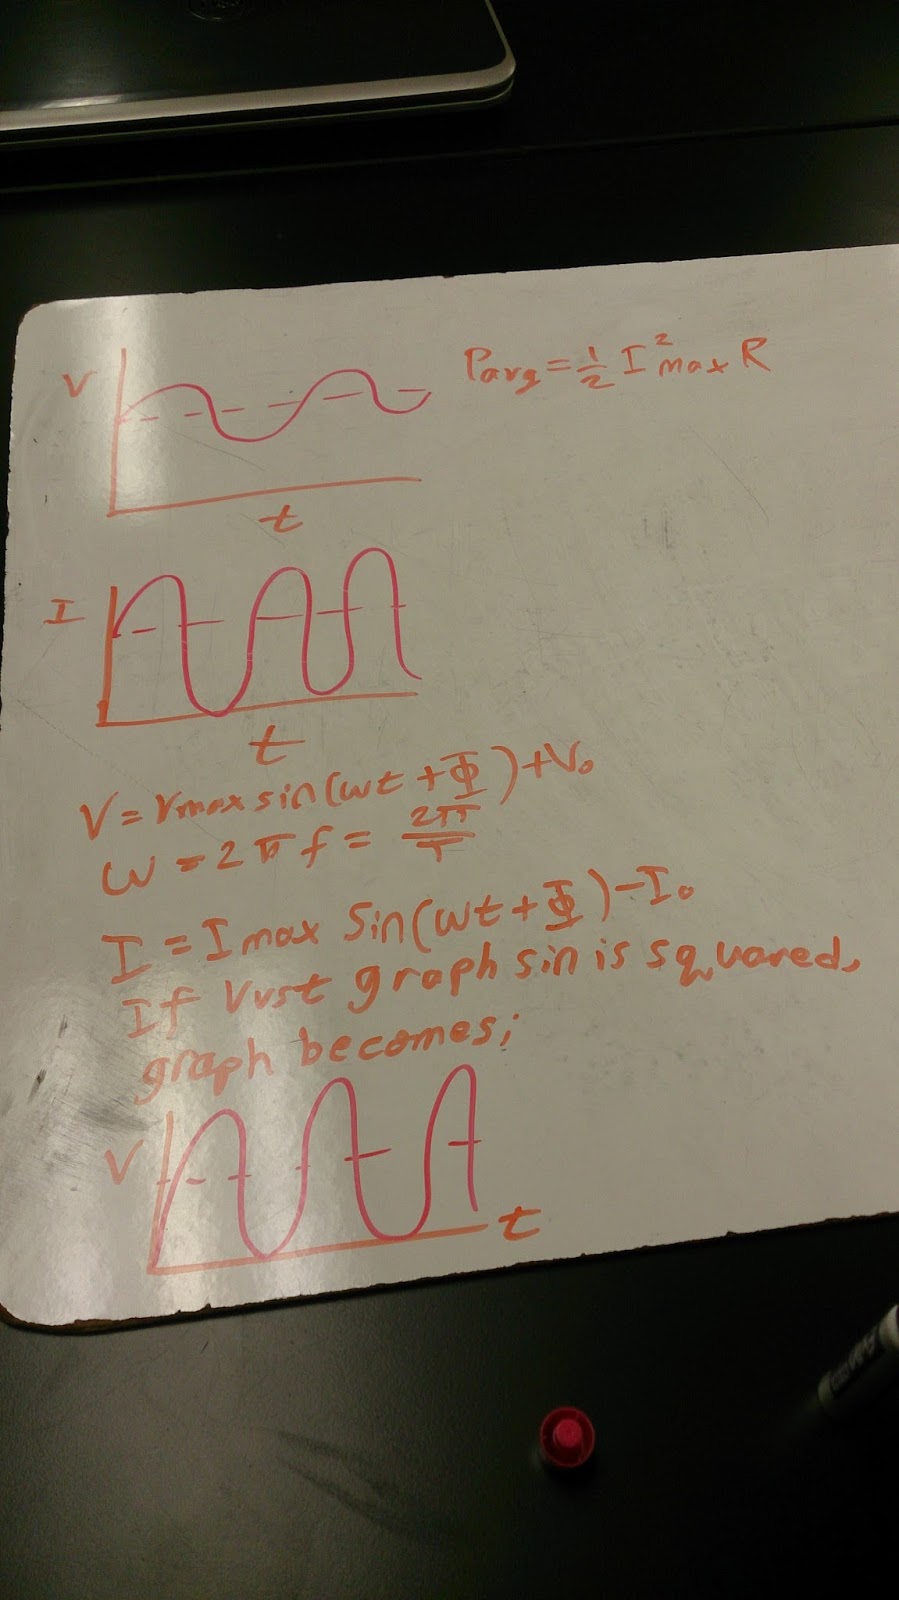 V
Pavg = 1/2 I²max R
t
I
t
V = Vmax sin(ωt + Φ) + V₀
ω = 2πf = 2π/T
I = Imax Sin(ωt + Φ) - I₀
If V vs t graph sin is squared,
graph becomes;
V
t